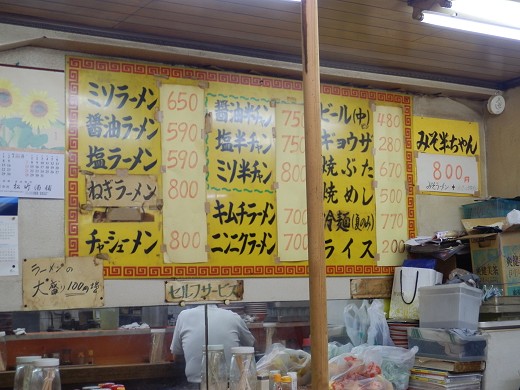 ミソラーメン 650
醤油ラーメン 590
塩ラーメン 590
ねぎラーメン 800
チャシューメン 800
醤油半チャン 75
塩半チャン 75
ミソ半チャン
キムチラーメン 700
ニンニクラーメン 700
ビール(中) 480
ギョウザ 280
焼ぶた 670
焼めし 500
冷麺(夏のみ) 770
ライス 200
みそ半ちゃん
800円
みそラーメン +
ラーメンの
大盛り100円増
セルフサービス